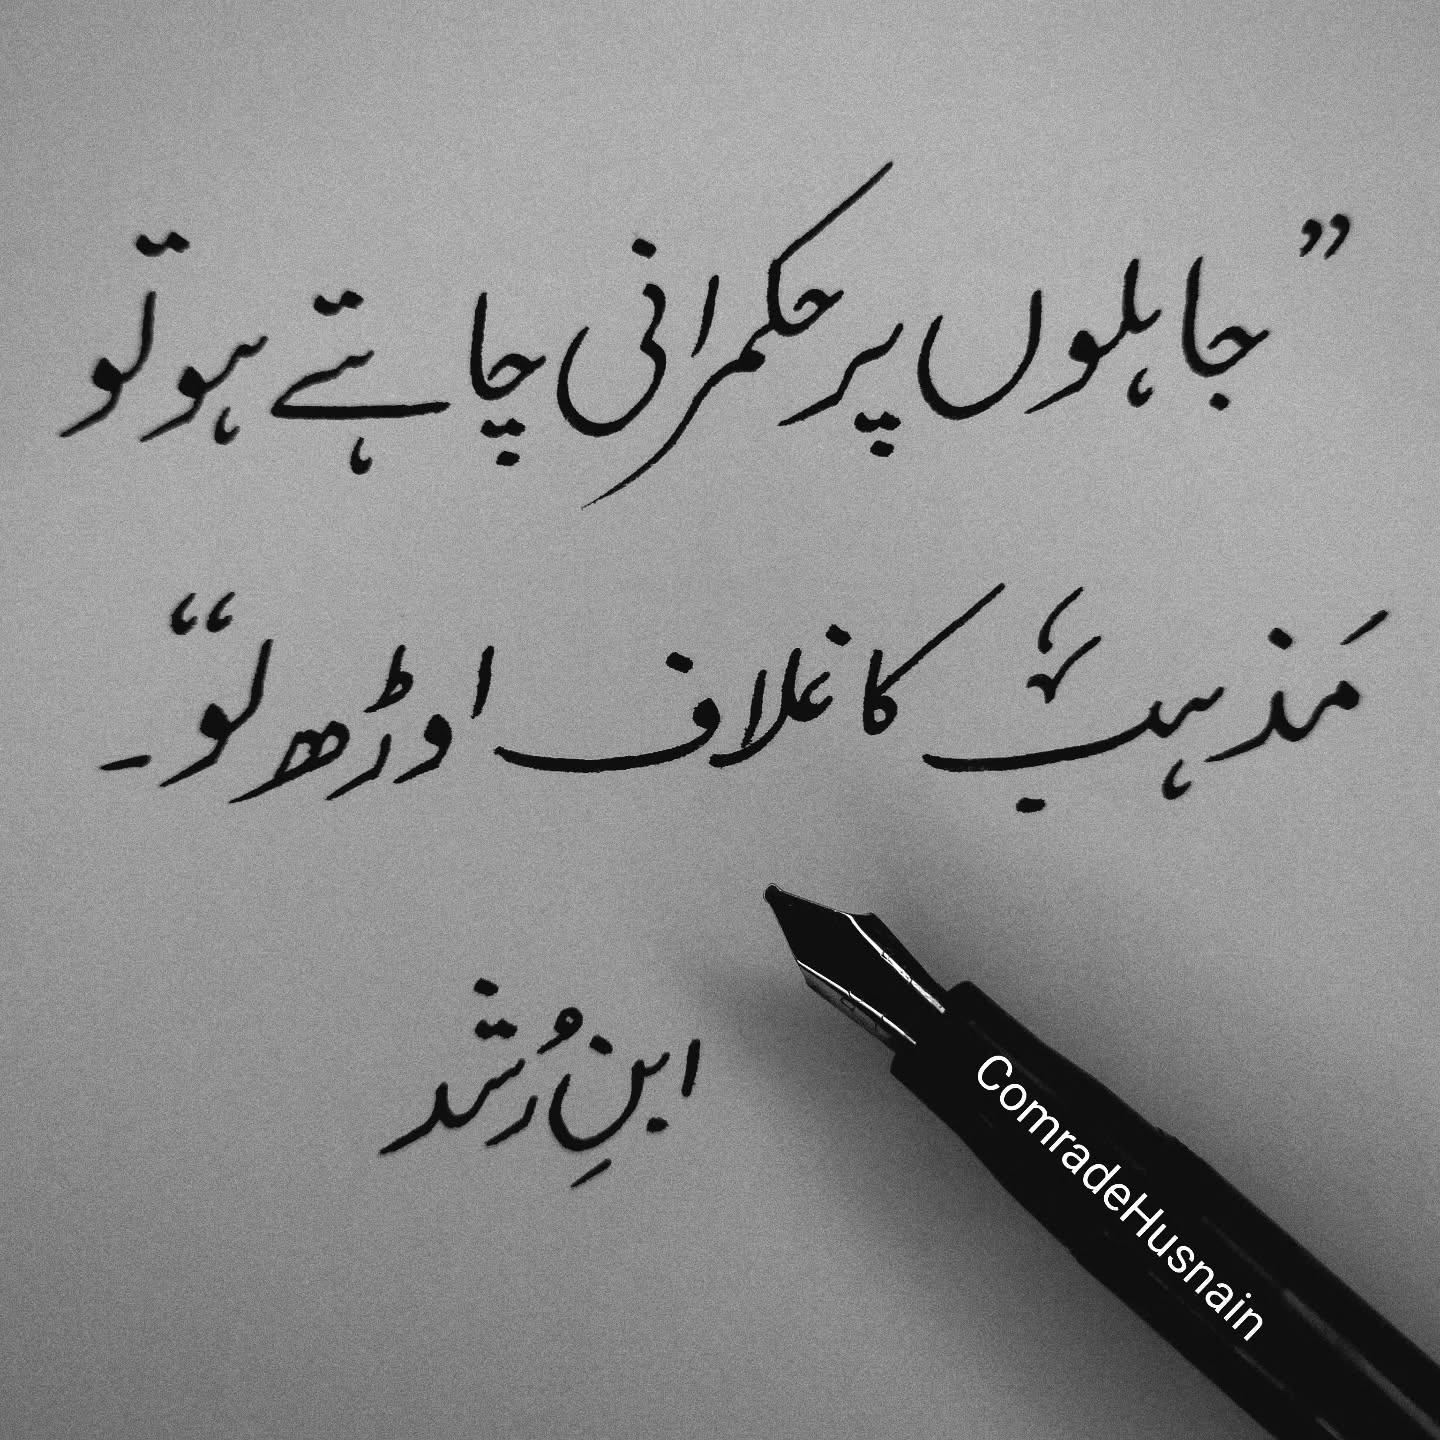 ”جاہلوں پر حکمرانی چاہتے ہو تو
مَذہب کا غلاف اوڑھ لو“۔
ابنِ رُشد
ComradeHusnain